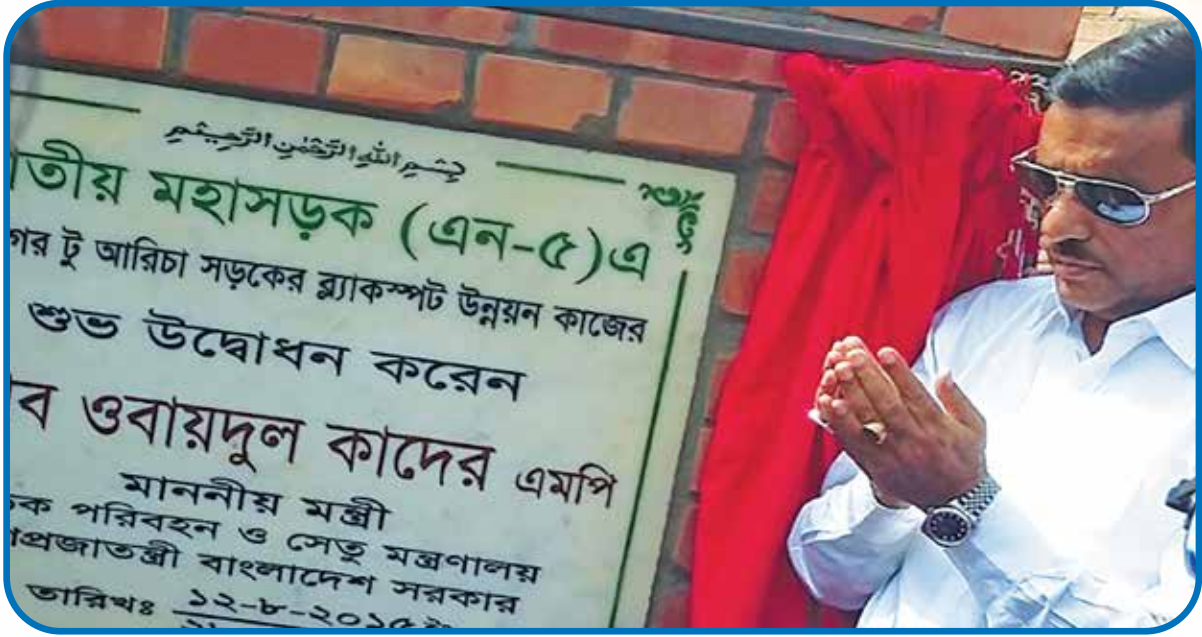 بِسْمِ اللهِ الرَّحْمٰنِ الرَّحِيْمِ
তীয় মহাসড়ক (এন-৫)এ
গর টু আরিচা সড়কের ব্ল্যাকস্পট উন্নয়ন কাজের
শুভ উদ্বোধন করেন
ব ওবায়দুল কাদের এমপি
মাননীয় মন্ত্রী
ক পরিবহন ও সেতু মন্ত্রণালয়
প্রজাতন্ত্রী বাংলাদেশ সরকার
তারিখঃ ১২-৮-২০১৫